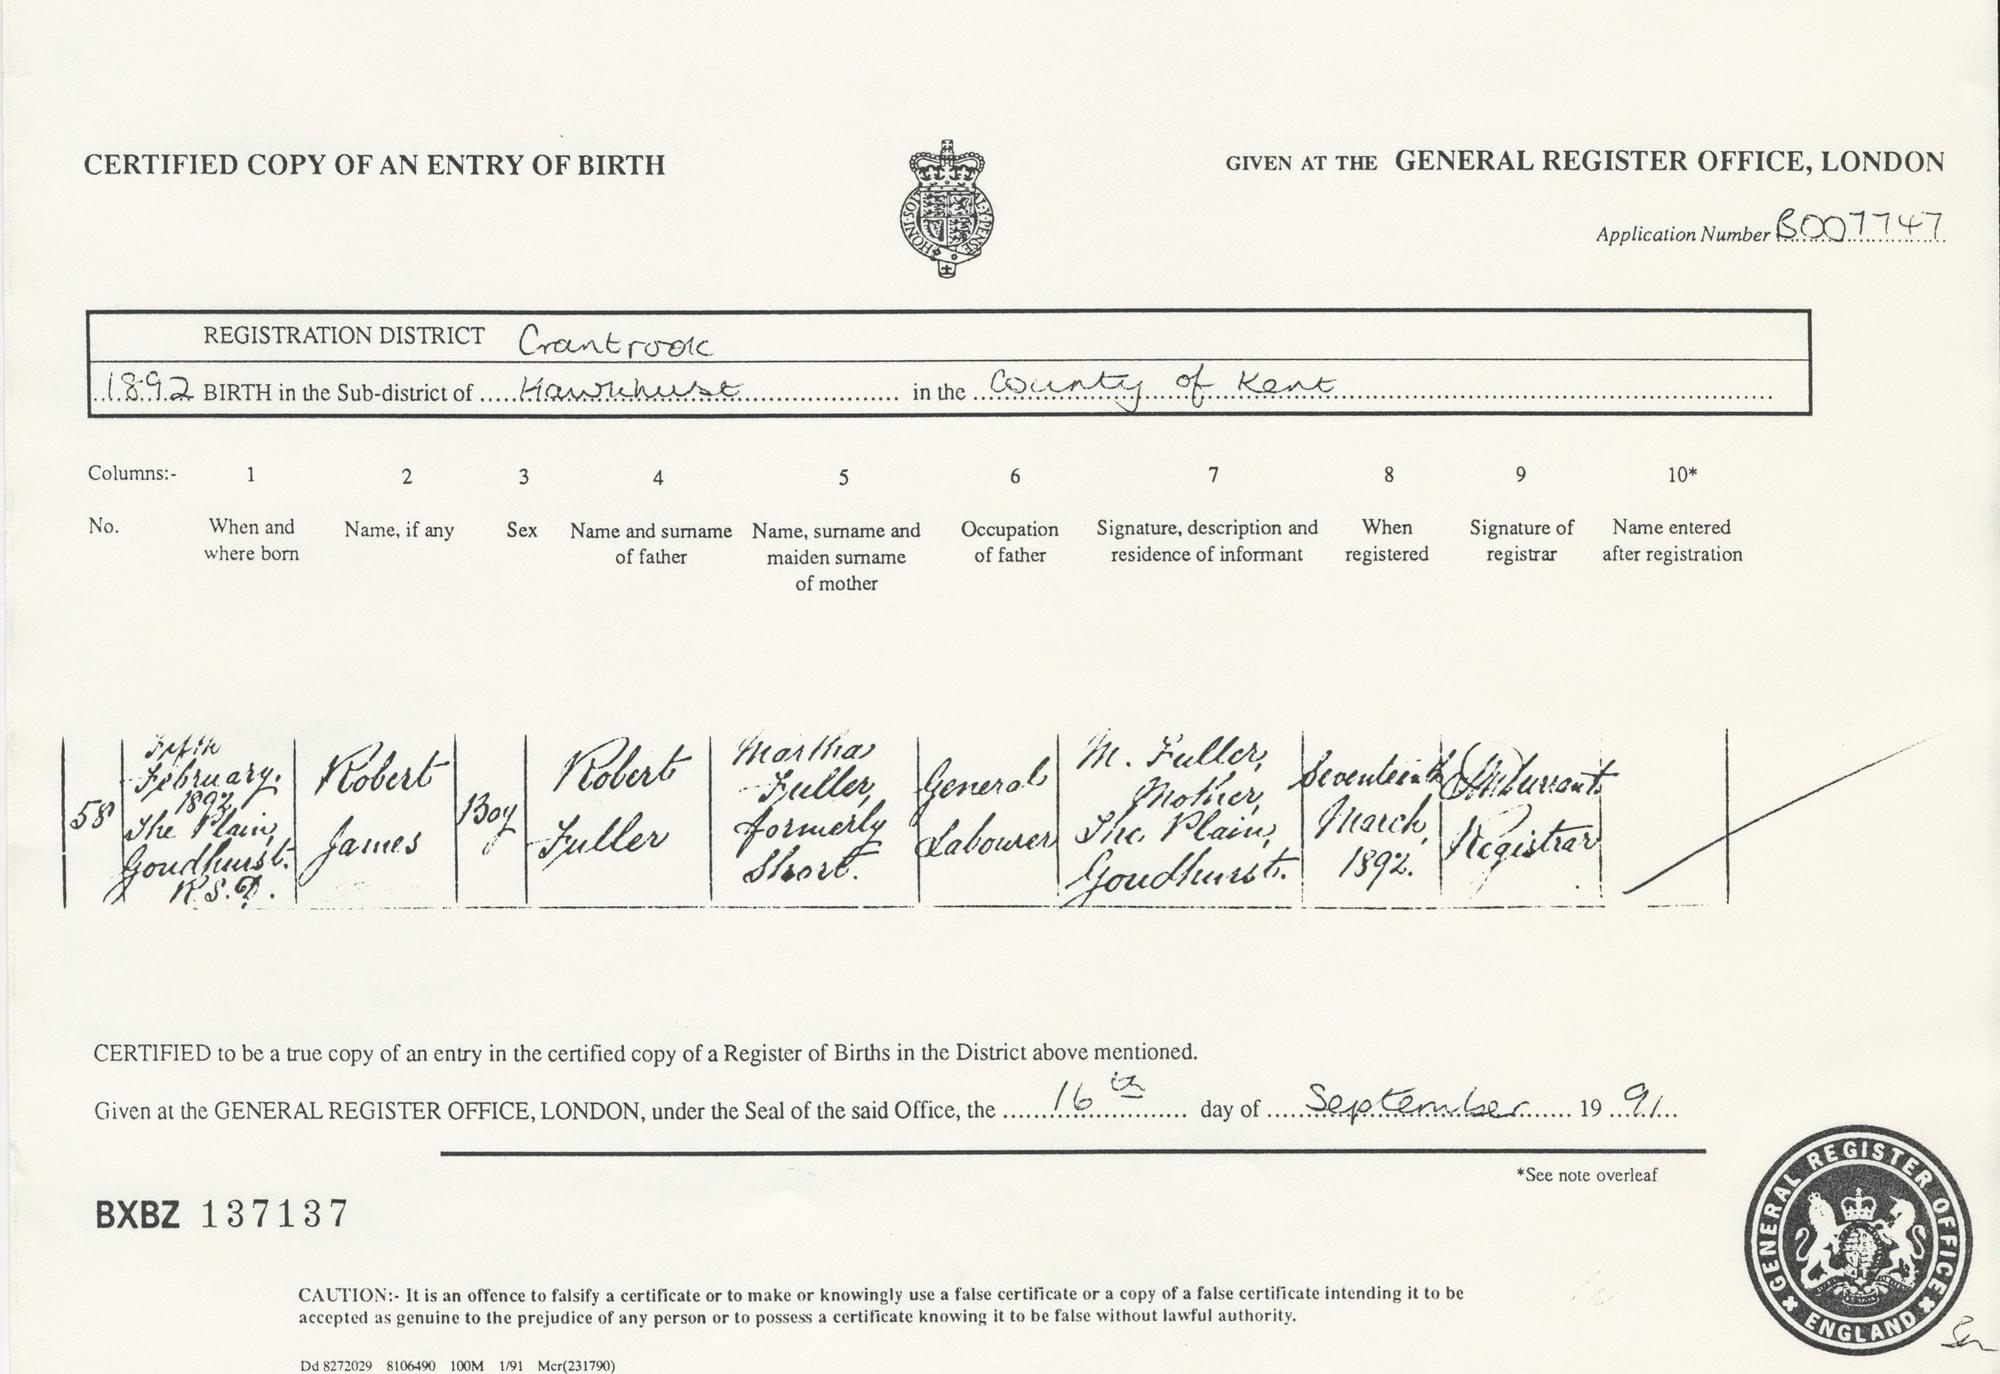 CERTIFIED COPY OF AN ENTRY OF BIRTH
GIVEN AT THE GENERAL REGISTER OFFICE, LONDON
HONI·SOI AL·Y·PENSE
Application Number B007747
REGISTRATION DISTRICT Cranbrook
1892 BIRTH in the Sub-district of Hawkhurst in the County of Kent
Columns:- 1 2 3 4 5 6 7 8 9 10*
No.
When and
where born
Name, if any
Sex
Name and surname
of father
Name, surname and
maiden surname
of mother
Occupation
of father
Signature, description and
residence of informant
When
registered
Signature of
registrar
Name entered
after registration
58
Fifth
February.
1892
The Plain,
Goudhurst.
R.S.D.
Robert
James
Boy
Robert
Fuller
Martha
Fuller,
formerly
Short.
General
Labourer
M. Fuller,
Mother,
The Plain,
Goudhurst.
Seventeenth
March,
1892.
Registrar
CERTIFIED to be a true copy of an entry in the certified copy of a Register of Births in the District above mentioned.
Given at the GENERAL REGISTER OFFICE, LONDON, under the Seal of the said Office, the 16th day of September 19 91
*See note overleaf
BXBZ 137137
GENERAL REGISTER OFFICE
ENGLAND
CAUTION:- It is an offence to falsify a certificate or to make or knowingly use a false certificate or a copy of a false certificate intending it to be
accepted as genuine to the prejudice of any person or to possess a certificate knowing it to be false without lawful authority.
Dd 8272029 8106490 100M 1/91 Mcr(231790)